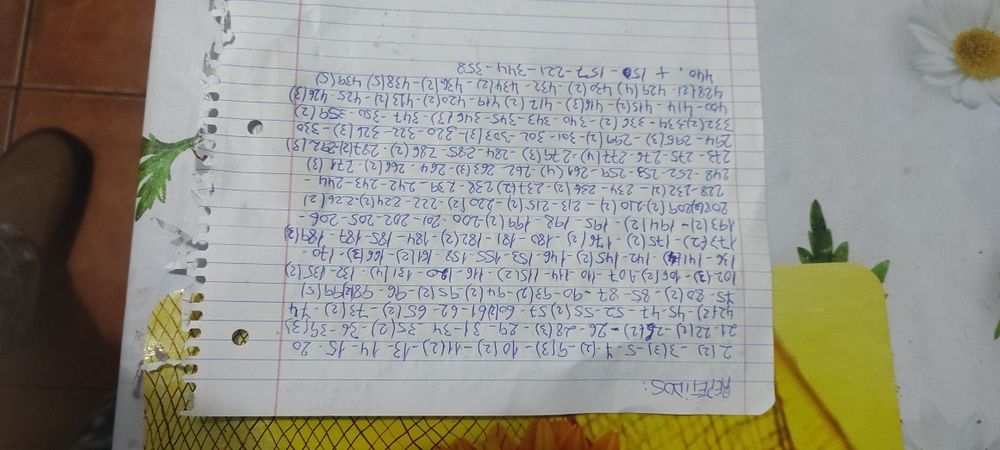 REPETIDOS:
2(2) - 3(3) - 5 - 7(2) - 9(3) - 10(2) - 11(2) - 13 - 14 - 15 - 20
21 22(2) - 25(2) - 26 - 28(3) - 29 - 31 - 34 - 35(2) - 36 - 39(3)
42(2) - 45 - 47 - 52 - 55(2) 57 60(2) 61 - 62 - 65(2) - 73(2) - 74
75 - 80(2) - 85 - 87 - 90 - 93(2) 94(2) 95(2) - 96 - 98(2) 99(5)
102(3) - 106(2) 107 - 110 - 114 - 115(2) - 116 - 120 - 131(4) - 132 - 135(2)
136 - 141(4) - 142 - 145(2) - 146 - 153 - 155 - 158 - 161(2) - 166(3) - 170 -
171(2) - 175(2) - 176(2) - 180 - 181 - 182(2) - 184 - 185 - 187 - 189(3)
193(2) - 194(2) - 195 - 198 - 199(2) 200 - 201 - 202 - 205 - 206 -
208(2) 209(2) 210(2) - 213 - 215(2) - 220(2) - 222 - 224(2) - 226(2)
228 - 232(2) - 234 - 236(2) - 237(2) 238 - 239 - 242 - 243 - 244 -
248 - 252 - 253 - 258 - 261(4) - 262 - 263(3) - 264 - 266(2) - 271(3)
273 - 275 - 276 - 277(4) - 279(2) - 284 - 285 - 286(2) - 287(2) 292(3)
294 - 295(3) - 299(2) - 301 - 302 - 303 - 317 - 320 - 322 - 326(3) - 330
332(2) 334 - 336(2) - 340 - 343 - 345 - 346(3) - 347 - 350 - 359(2)
400 - 414 - 415(2) - 416(2) - 417(2) 419 - 420(2) - 423(2) - 425 - 426(3)
428(2) - 429(4) - 430(2) - 432 - 434(2) - 436 - 438(5) 439(5)
440. + 150 - 157 - 221 - 344 - 358